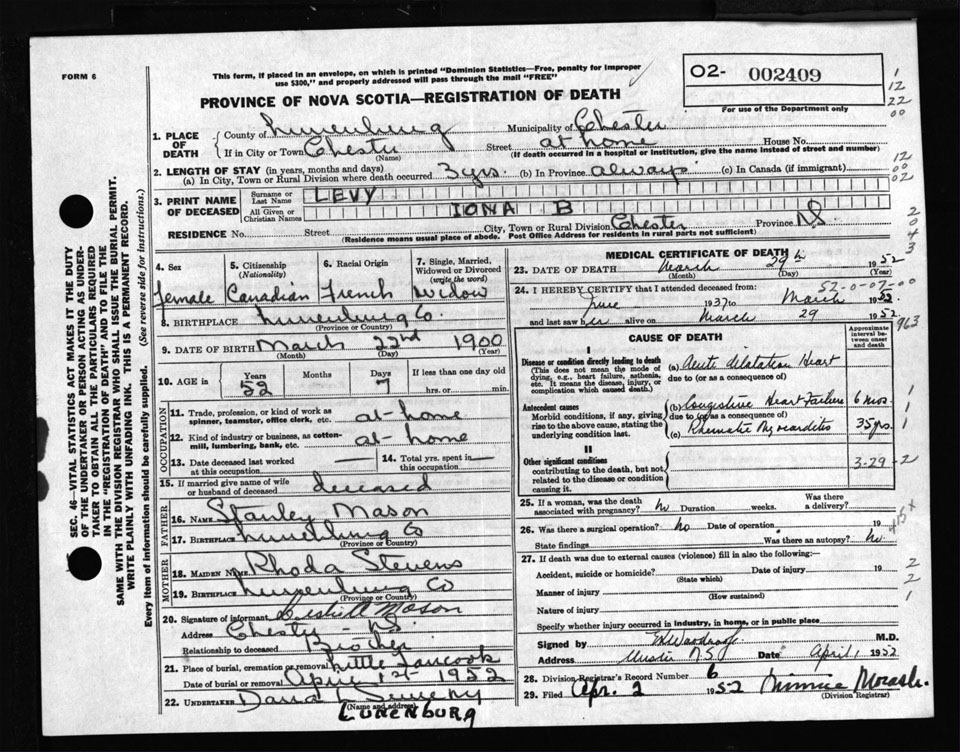 FORM 6
This form, if placed in an envelope, on which is printed "Dominion Statistics—Free, penalty for improper
use $300," and properly addressed will pass through the mail "FREE"
O2- 002409
For use of the Department only
PROVINCE OF NOVA SCOTIA—REGISTRATION OF DEATH
1. PLACE OF DEATH
County of Lunenburg Municipality of Chester
If in City or Town Chester Street at home House No.
(Name) (If death occurred in a hospital or institution, give the name instead of street and number)
2. LENGTH OF STAY (in years, months and days)
(a) In City, Town or Rural Division where death occurred 3 yrs. (b) In Province always (c) In Canada (if immigrant)
3. PRINT NAME OF DECEASED
Surname or Last Name LEVY
All Given or Christian Names IONA B
RESIDENCE No. Street City, Town or Rural Division Chester Province N.S.
(Residence means usual place of abode. Post Office Address for residents in rural parts not sufficient)
4. Sex female
5. Citizenship (Nationality) Canadian
6. Racial Origin French
7. Single, Married, Widowed or Divorced (write the word) Widow
8. BIRTHPLACE Lunenburg Co.
(Province or Country)
9. DATE OF BIRTH March 22nd 1900
(Month) (Day) (Year)
10. AGE in Years 52 Months Days 7 If less than one day old hrs. or min.
OCCUPATION
11. Trade, profession, or kind of work as spinner, teamster, office clerk, etc. at-home
12. Kind of industry or business, as cotton-mill, lumbering, bank, etc. at-home
13. Date deceased last worked at this occupation —
14. Total yrs. spent in this occupation —
15. If married give name of wife or husband of deceased deceased
FATHER
16. NAME Stanley Mason
17. BIRTHPLACE Lunenburg Co
(Province or Country)
MOTHER
18. MAIDEN NAME Rhoda Stevens
19. BIRTHPLACE Lunenburg Co
(Province or Country)
20. Signature of informant Mason
Address Chester - N.S.
Relationship to deceased Brother
21. Place of burial, cremation or removal Little Tancook
Date of burial or removal April 1st 1952
22. UNDERTAKER David L Sweeny
(Name and address)
LUNENBURG
MEDICAL CERTIFICATE OF DEATH
23. DATE OF DEATH March 29th 1952
(Month) (Day) (Year)
52-0-07-00
24. I HEREBY CERTIFY that I attended deceased from
June 1937 to March 1952
and last saw her alive on March 29 1952
CAUSE OF DEATH
Approximate interval between onset and death
Disease or condition directly leading to death
(This does not mean the mode of dying, e.g., heart failure, asthenia, etc. It means the disease, injury, or complication which caused death.)
(a) Acute dilatation Heart
due to (or as a consequence of)
Antecedent causes
Morbid conditions, if any, giving rise to the above cause, stating the underlying condition last.
(b) Congestive Heart Failure 6 mos
due to (or as a consequence of)
(c) Rheumatic Myocarditis 35 yrs.
II
Other significant conditions
contributing to the death, but not related to the disease or condition causing it.
3-29-2
25. If a woman, was the death associated with pregnancy? No Duration weeks. Was there a delivery?
26. Was there a surgical operation? No Date of operation 19
State findings Was there an autopsy? No.
27. If death was due to external causes (violence) fill in also the following:—
Accident, suicide or homicide? Date of injury 19
(State which)
Manner of injury
(How sustained)
Nature of injury
Specify whether injury occurred in industry, in home, or in public place
Signed by M.D.
Address N.S. Date April 1 1952
28. Division Registrar's Record Number 6
29. Filed Apr. 2 1952 Minnie
(Division Registrar)
SEC. 46—VITAL STATISTICS ACT MAKES IT THE DUTY
OF THE UNDERTAKER OR PERSON ACTING AS UNDER-
TAKER TO OBTAIN ALL THE PARTICULARS REQUIRED
IN THE "REGISTRATION OF DEATH" AND TO FILE THE
SAME WITH THE DIVISION REGISTRAR WHO SHALL ISSUE THE BURIAL PERMIT.
WRITE PLAINLY WITH UNFADING INK. THIS IS A PERMANENT RECORD.
Every item of information should be carefully supplied. (See reverse side for instructions.)
1
12
22
00
12
00
02
2
0
4
3
963
1
1
1
2
2
1